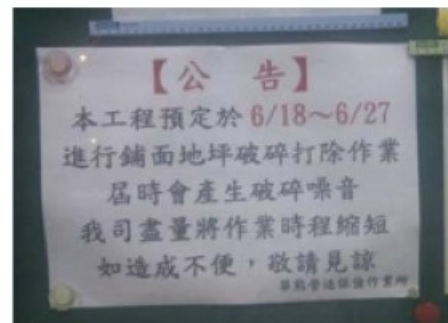 【公 告】
本工程預定於 6/18～6/27
進行鋪面地坪破碎打除作業
屆時會產生破碎噪音
我司盡量將作業時程縮短
如造成不便，敬請見諒